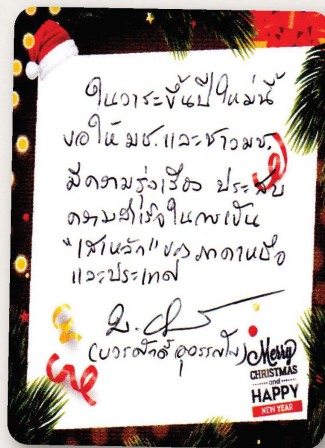 ในวาระขึ้นปีใหม่นี้
ขอให้ มช. และชาวมช.
มีความรุ่งเรือง ประสบ
ความสำเร็จในการเป็น
"เสาหลัก" ของภาคเหนือ
และประเทศ
(บวรศักดิ์ อุวรรณโณ)
Merry
CHRISTMAS
and
HAPPY
NEW YEAR